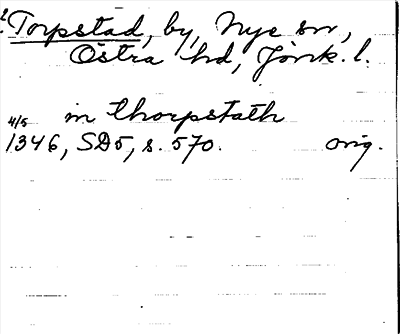 Torpstad, by, Nye sn,
Östra hd, Jönk. l.
in thorpstath
4/5
1346, SD5, s. 570. orig.